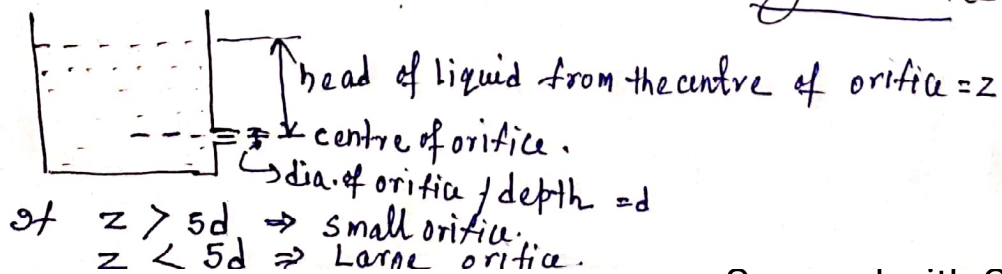 head of liquid from the centre of orifice = z
centre of orifice.
dia. of orifice / depth = d
If z > 5d ⇒ small orifice.
z < 5d ⇒ Large orifice.